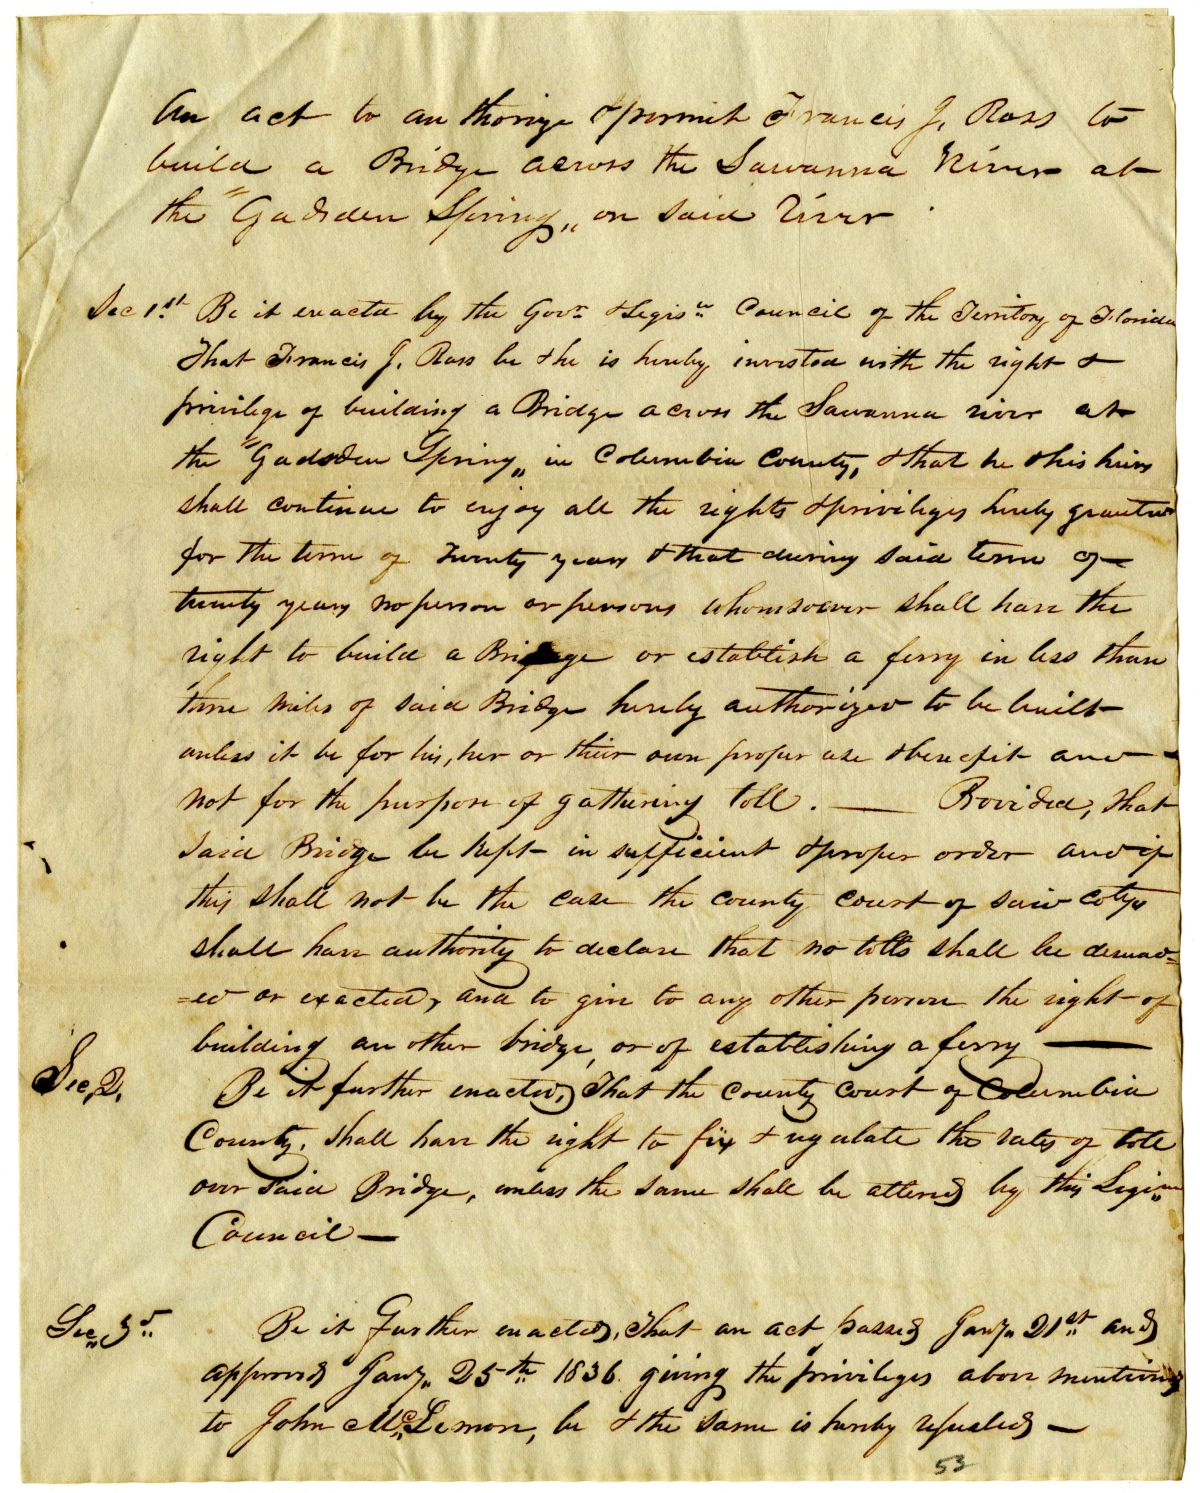 An act to authorize & permit Francis J. Ross to
build a Bridge across the Suwanna River at
the "Gadsden Spring" on said River.
Sec 1st. Be it enacted by the Govr. & Legisve. Council of the Territory of Florida
That Francis J. Ross be & he is hereby invested with the right &
privilege of building a Bridge across the Suwanna river at
the "Gadsden Spring" in Columbia County, & that he & his heirs
shall continue to enjoy all the rights & privileges hereby granted
for the term of Twenty years & that during said term of
twenty years no person or persons whomsoever shall have the
right to build a Bridge or establish a ferry in less than
three miles of said Bridge hereby authorized to be built
unless it be for his, her or their own proper use & benefit and
not for the purpose of gathering toll. — Provided, that
said Bridge be kept in sufficient & proper order and if
this shall not be the case the county court of said coty
shall have authority to declare that no tolls shall be demand=
=ed or exacted, and to give to any other person the right of
building an other bridge, or of establishing a ferry —
Sec, 2. Be it further enacted, That the county court of Columbia
County, shall have the right to fix & regulate the rates of toll
over said Bridge, unless the same shall be altered by this Legisve
Council —
Sec 3d. Be it Further enacted, That an act passed Jany. 21st. and
approved Jany. 25th. 1836. giving the privileges above mentioned
to John McLemore, be & the same is hereby repealed —
53